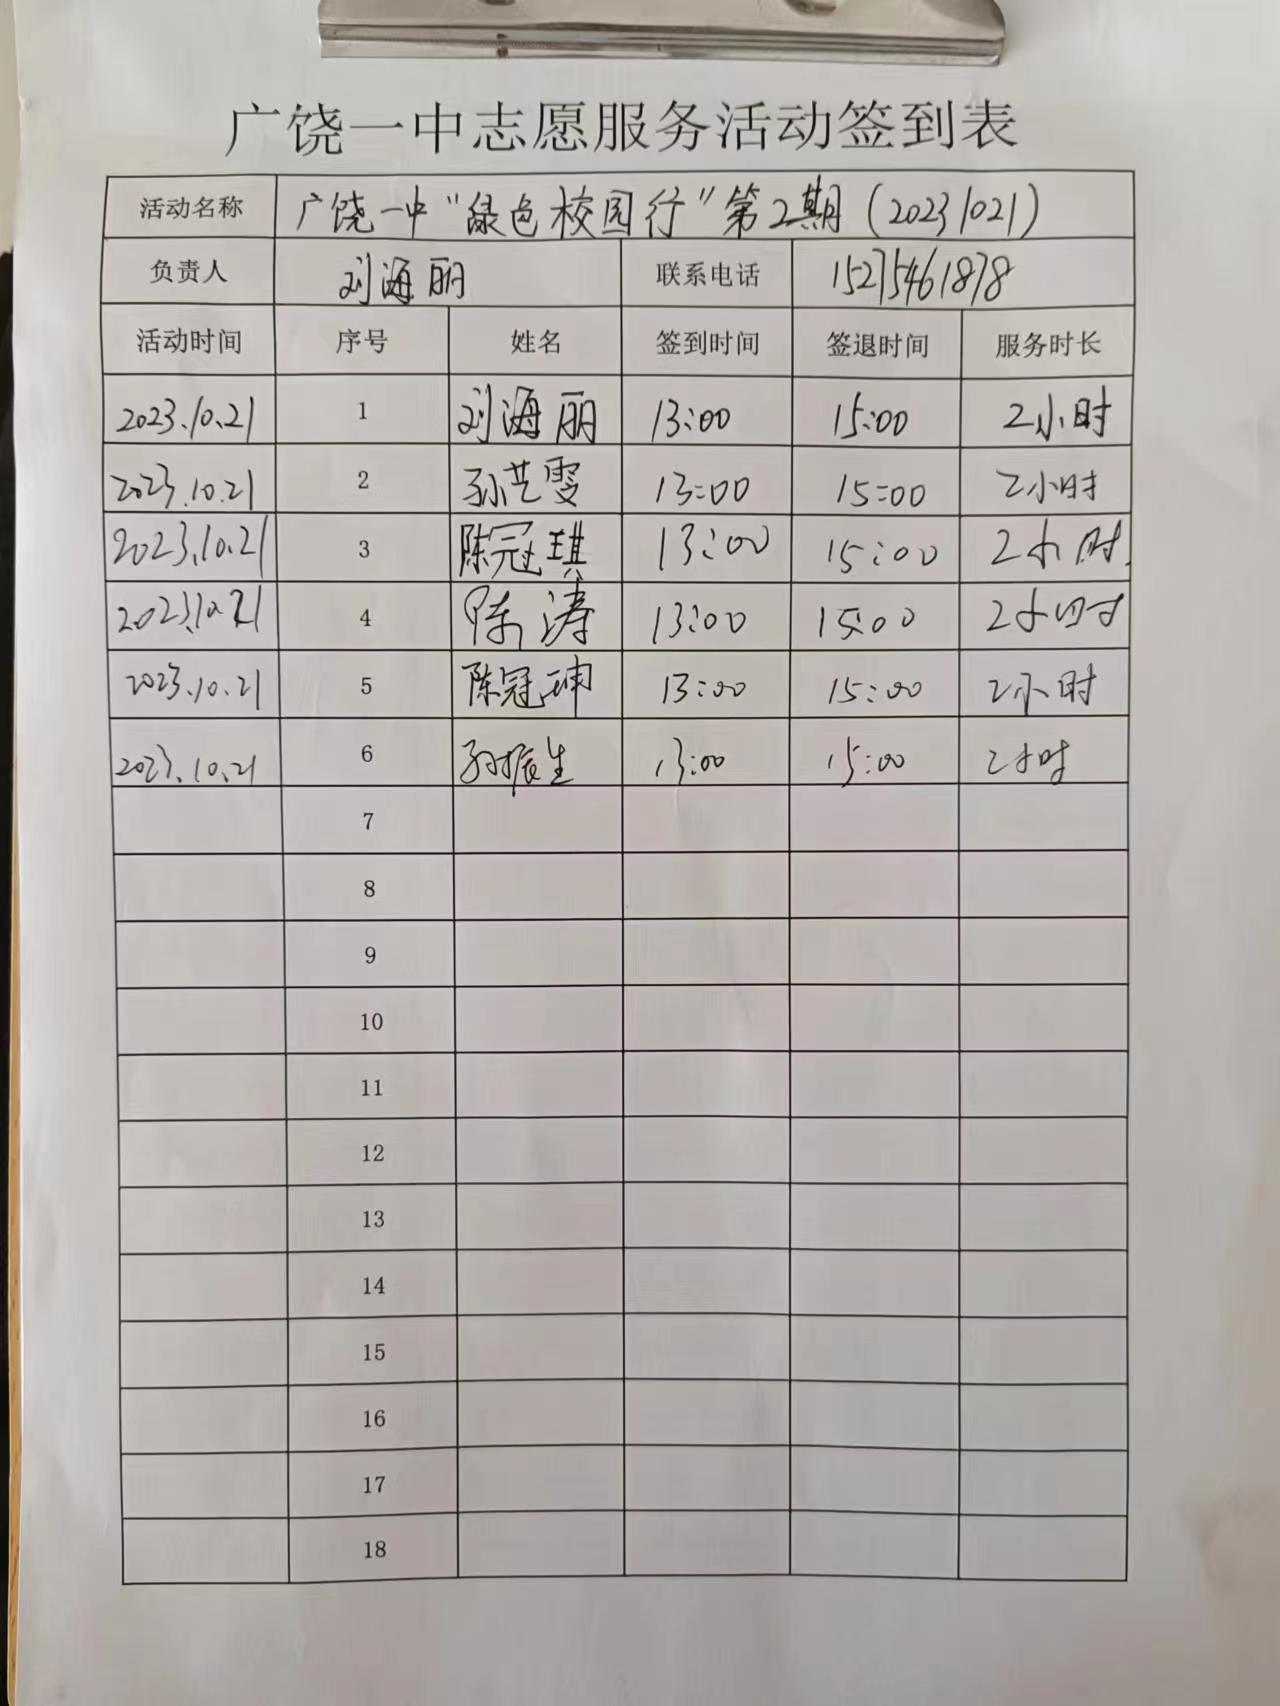 广饶一中志愿服务活动签到表
活动名称 广饶一中“绿色校园行”第2期(20231021)
负责人 刘海丽 联系电话 15275461878
活动时间 序号 姓名 签到时间 签退时间 服务时长
2023.10.21 1 刘海丽 13:00 15:00 2小时
2023.10.21 2 孙艺雯 13:00 15:00 2小时
2023.10.21 3 陈冠琪 13:00 15:00 2小时.
2023.10.21 4 陈涛 13:00 15:00 2小时
2023.10.21 5 陈冠珅 13:00 15:00 2小时
2023.10.21 6 孙振生 13:00 15:00 2小时
7
8
9
10
11
12
13
14
15
16
17
18